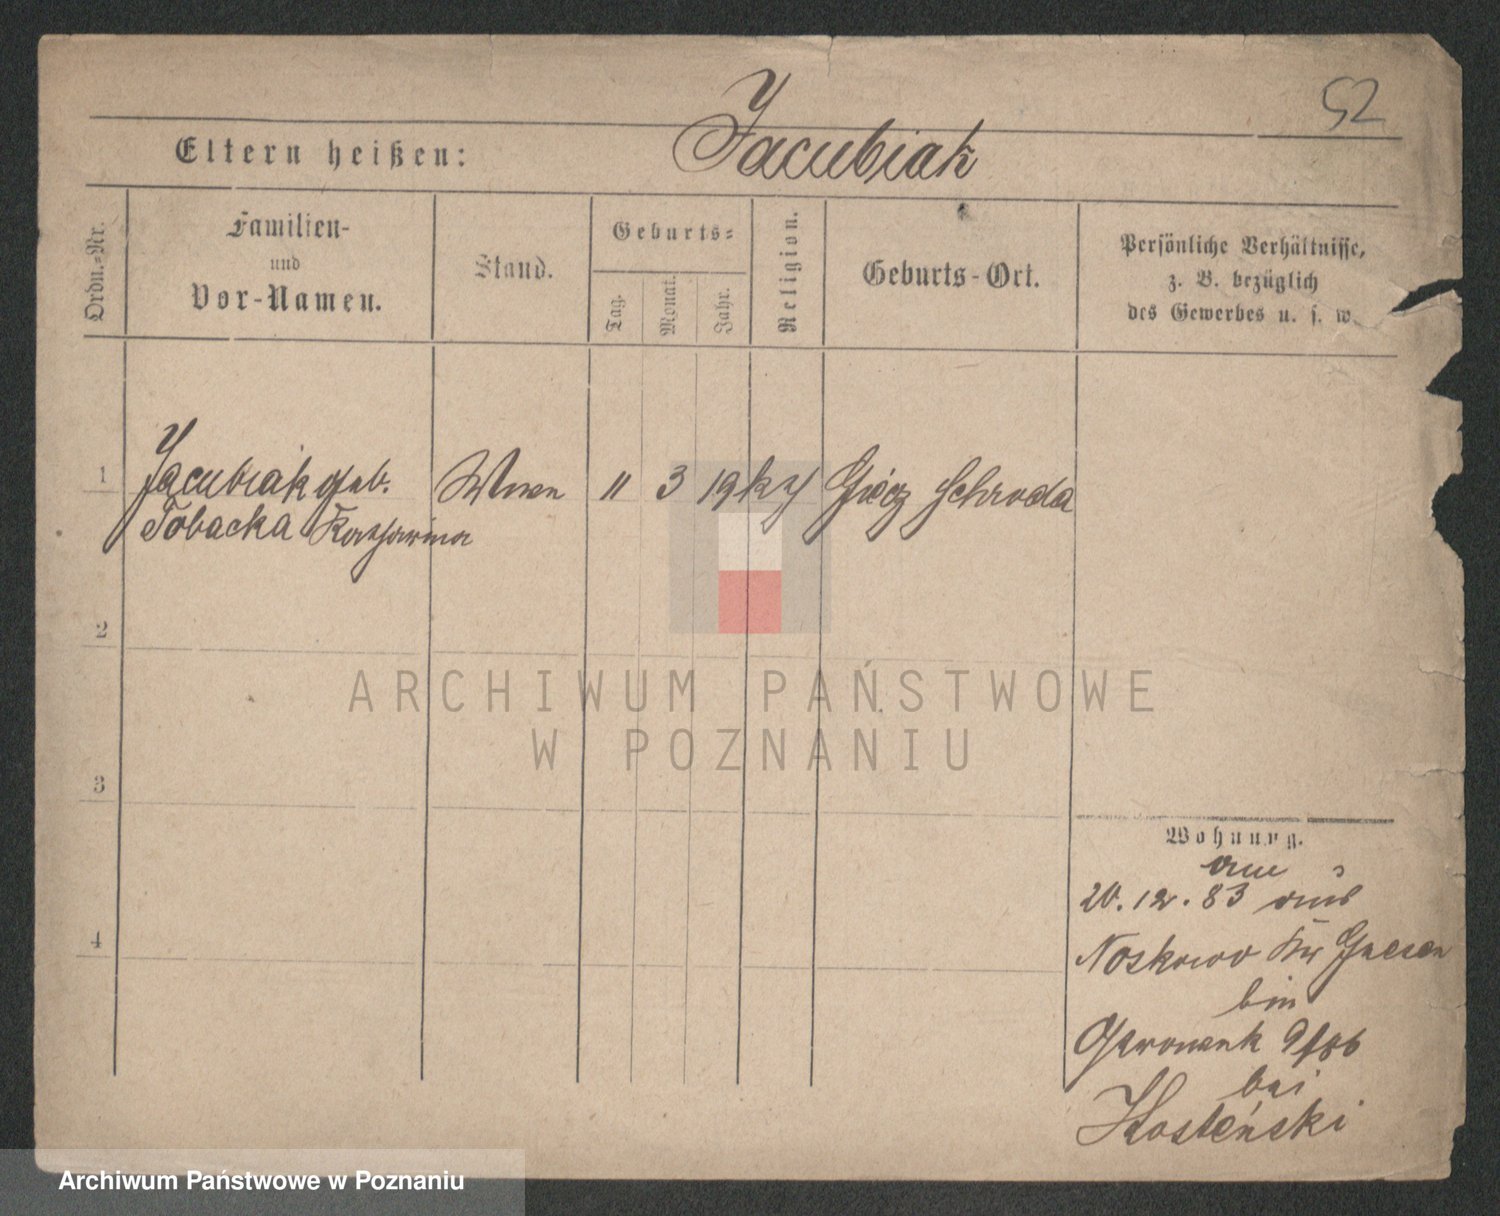 52
Eltern heißen: Jacubiak
Ordn.-Nr.
Familien-
und
Vor-Namen.
Stand.
Geburts-
Tag.
Monat.
Jahr.
Religion.
Geburts-Ort.
Persönliche Verhältnisse,
z. B. bezüglich
des Gewerbes u. s. w.
1 Jacubiak geb. 11 3 19 Giecz Schroda
Tobacka Katharina
2
3
4
ARCHIWUM PAŃSTWOWE
W POZNANIU
Wohnung.
am
20. 12. 83 aus
Noskowo Kr Gnesen
bin
9/86
bei
Kosteński
Archiwum Państwowe w Poznaniu